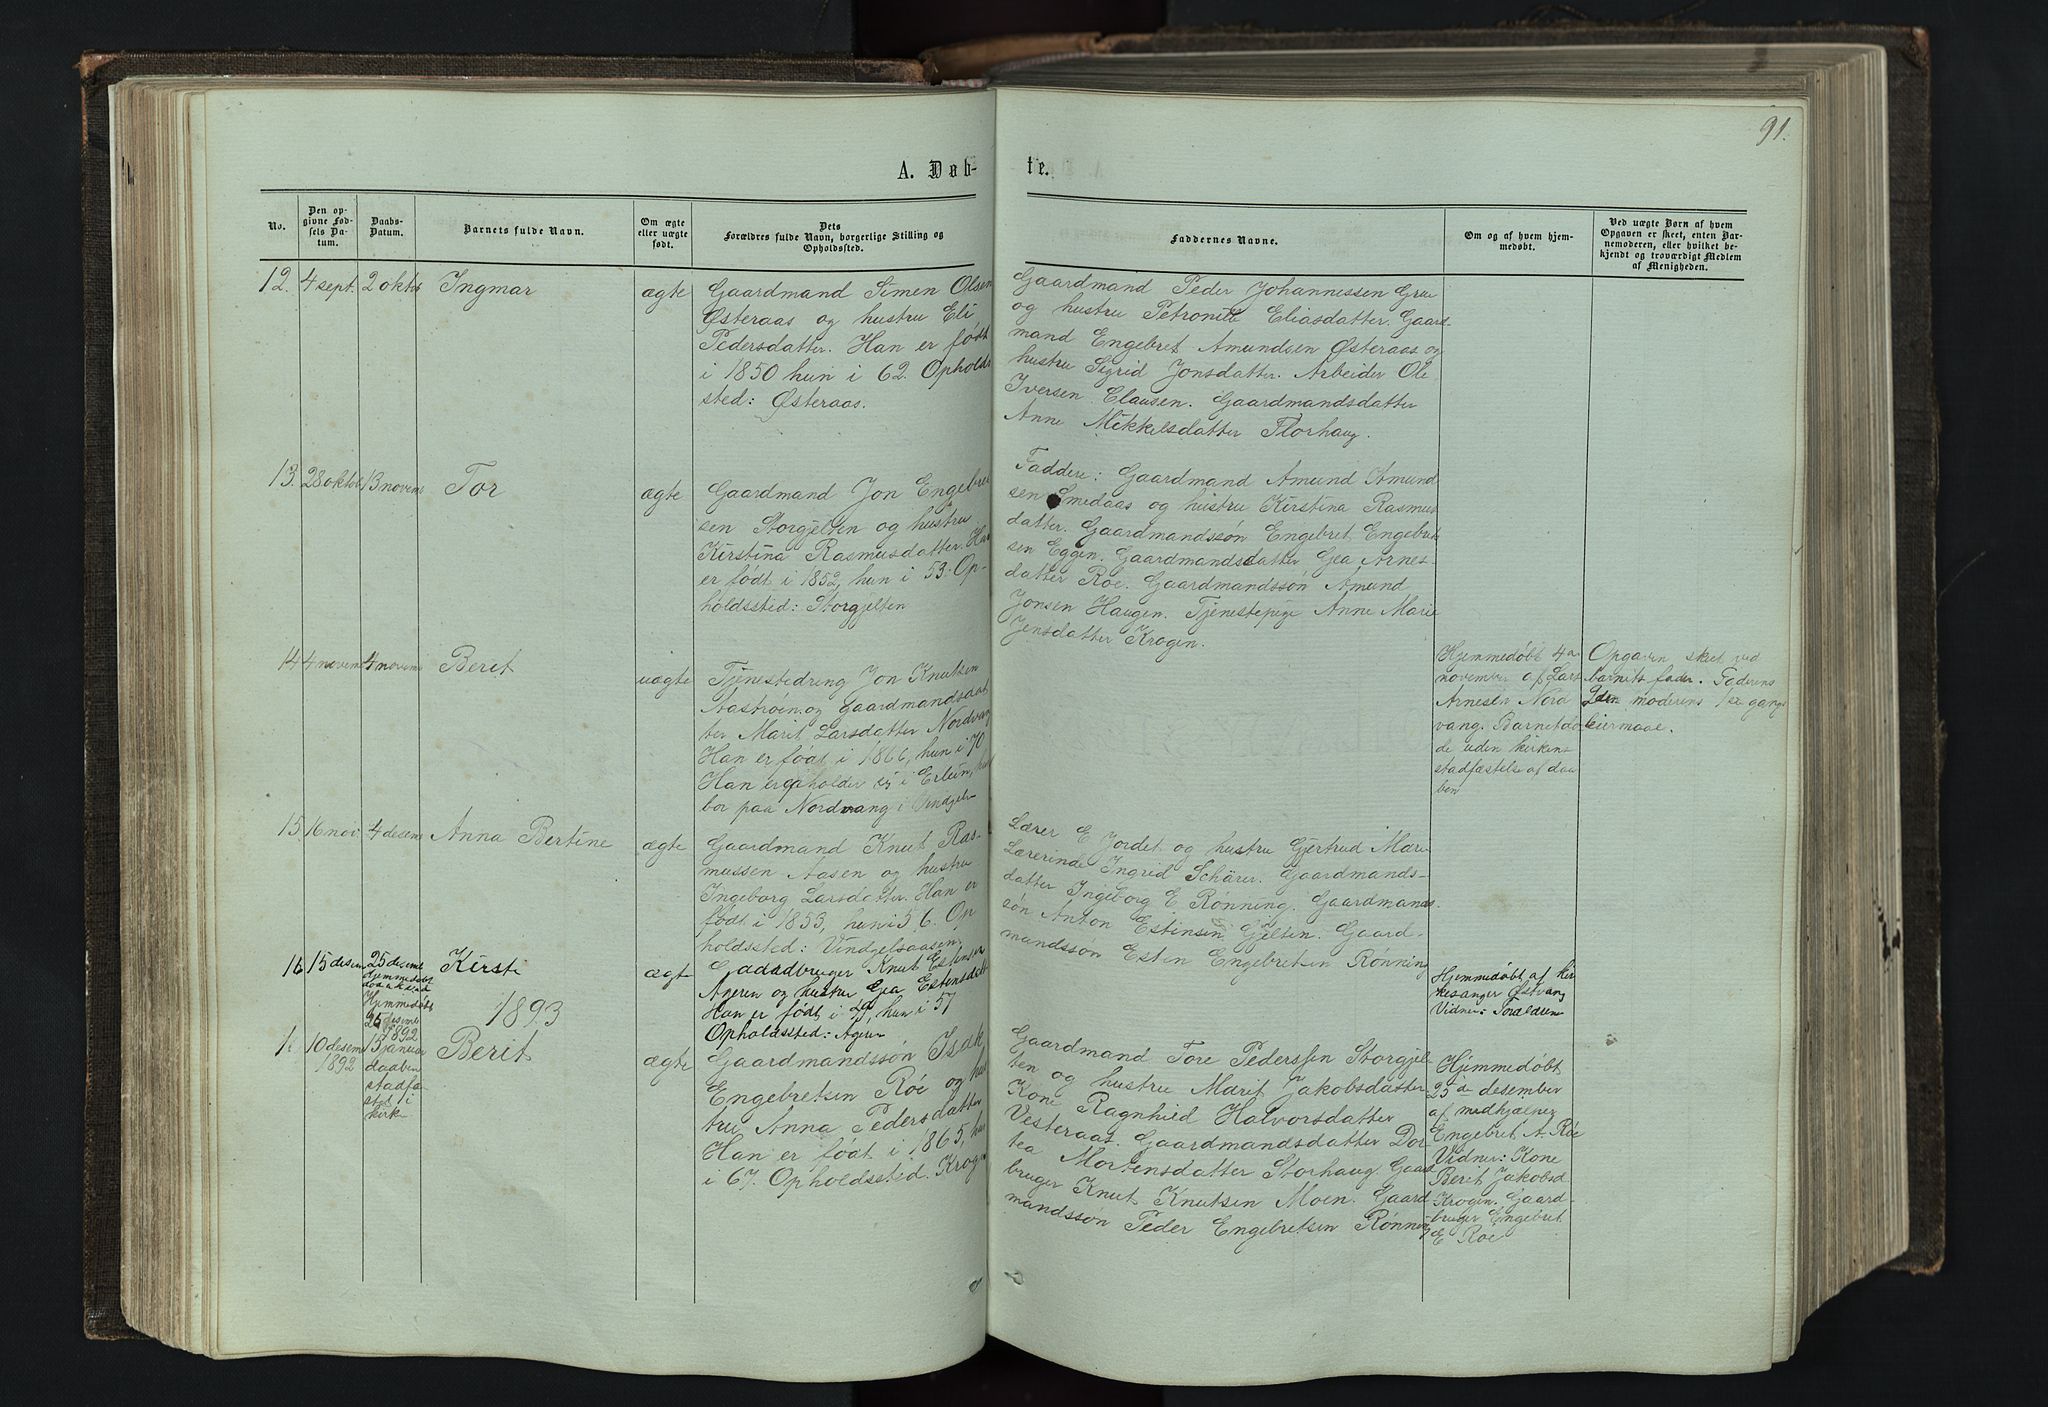 91.
A. Døb-
te.
No.
Den op-
givne Fød-
sels Da-
tum.
Daabs-
Datum.
Barnets fulde Navn.
Om ægte
eller uægte
født.
Dets
Forældres fulde Navn, borgerlige Stilling og
Opholdssted.
Faddernes Navne.
Om og af hvem hjem-
medøbt.
Ved uægte Børn af hvem
Opgaven er skeet, enten Bar-
nemoderen, eller hvilket be-
kjendt og troværdigt Medlem
af Menigheden.
12. 4 sept. 2 oktob Ingmar ægte
Gaardmand Simen Olsen
Østeraas og hustru Eli
Pedersdatter. Han er født
i 1850 hun i 62. Opholds
sted: Østeraas.
Gaardmand Peder Johannessen Grue
og hustru Petronille Eliasdatter. Gaard-
mand Engebret Amundsen Østeraas og
hustru Sigrid Jonsdatter. Arbeider Ole
Iversen Clausen. Gaardmandsdatter
Anne Mikkelsdatter Florhaug.
13. 28 oktob 13 novem Tor ægte
Gaardmand Jon Engebret
sen Storgjelten og hustru
Kirstina Rasmusdatter. Han
er født i 1852, hun i 53. Op-
holdssted: Storgjelten
Faddere: Gaardmand Amund Amund
sen Smedaas og hustru Kirstina Rasmus
datter. Gaardmandssøn Engebret Engebret
sen Eggen. Gaardmandsdatter Gea Arnes-
datter Roe. Gaardmandssøn Amund
Jonsen Haugen. Tjenestepige Anne Marie
Jensdatter Krogen.
14 4 novem 4 novem Berit uægte
Tjenestedreng Jon Knutsen
og Gaardmandsdat
ter Marit Larsdatter Nordvang
Han er født i 1866, hun i 70
Han opholder i
bor paa Nordvang i
Hjemmedøbt 4 a
november af Lars
Arnesen Nord
vang. Barnet dø
de uden kirkens
stadfæstelse af daa
ben
Opgaven skeet ved
barnets fader. Faderens
2den moderens 1ste gangs
leiermaal.
15. 16 nov 4 desem Anna Bertine ægte
Gaardmand Knut Ras-
mussen Aasen og hustru
Ingeborg Larsdatter. Han er
født i 1853, hun i 56. Op
holdssted: Vindgelsaasen.
Lærer E Jordet og hustru Gjertrud Marie
Lærerinde Ingrid Schärer. Gaardmands-
datter Ingeborg E Rønning. Gaardmands-
søn Anton Estensen Gjelten. Gaard-
mandssøn Esten Engebretsen Rønning
16 15 desem 25 desemb
Hjemmedøbt
25 desemb
1892
Kirste ægt
bruger Knut Estensen
Ageren og hustru Gea Estensdatt
Han er født i hun i 57
Opholdssted: Ageren
Hjemmedøbt af kir
kesanger Østvang
Vidner: Forældrene
1893
1. 10 desem
1892
15 januar
daaben
stadfæ
sted i
kirke
Berit ægte
Gaardmandssøn Isak
Engebretsen Roe og hus
tru Anna Pedersdatter
Han er født i 1865, hun
i 67. Opholdssted. Krogen
Gaardmand Tore Pederssen Storgjel-
ten og hustru Marit Jakobsdatter
Kone Ragnhild Halvorsdatter
Vesteraas. Gaardmandsdatter Dor
tea Mortensdatter Storhaug Gaard
bruger Knut Knutsen Moen. Gaard
mandssøn Peder Engebretsen Rønning
Hjemmedøbt
25de desember
af medhjælper
Engebret A. Roe
Vidner: Kone
Berit Jakobsd
Krogen. Gaard-
bruger Engebret
E Roe